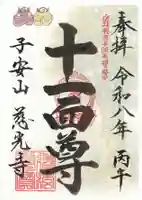 奉拝 令和八年 丙午
十一面尊
子安山 慈光寺